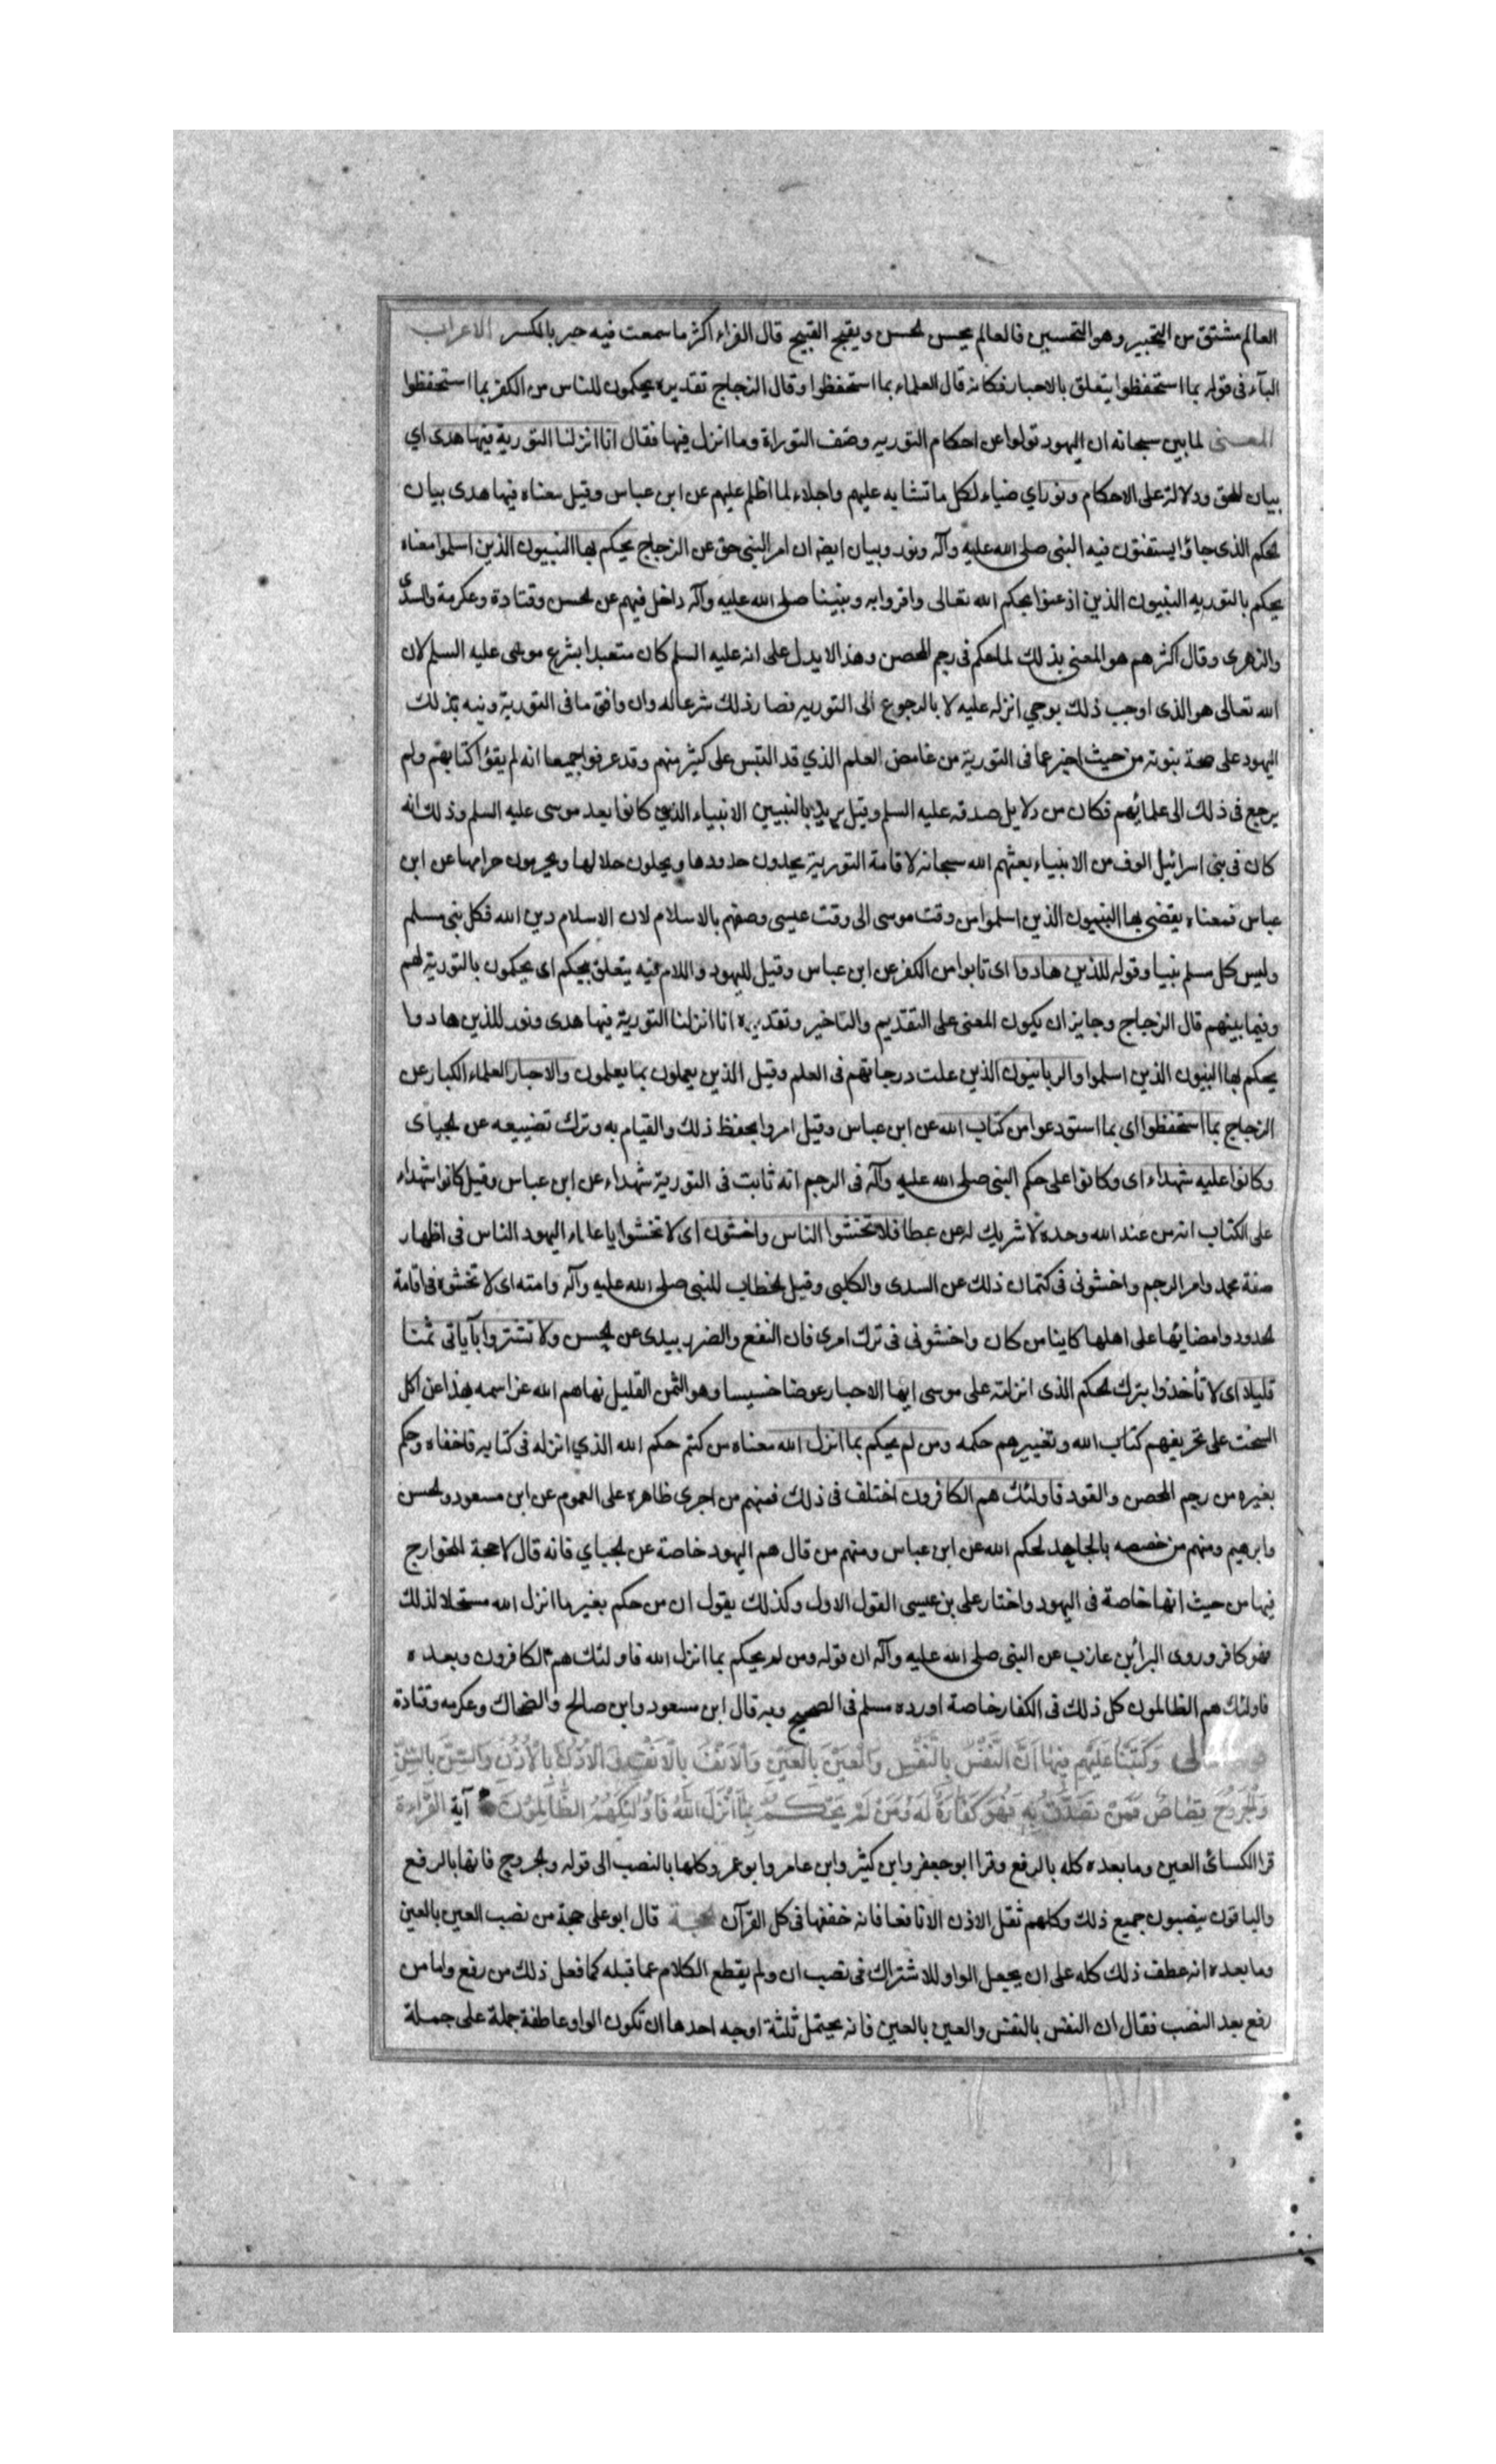 العالم مشتق من التحبير وهو التحسين فالعالم يحسن الحسن ويقبح القبيح قال الفراء اكثر ما سمعت فيه حبر بالكسر الاعراب
الباء فى قوله بما استحفظوا يتعلق بالاحبار فكانه قال العلماء بما استحفظوا وقال الزجاج تقديره يحكمون للناس من الكفر بما استحفظوا
المعنى لما بين سبحانه ان اليهود تولوا عن احكام التوريه وصف التوراة وما انزل فيها فقال انا انزلنا التورية فيها هدى اي
بيان للحق ودلالة على الاحكام ونور اي ضياء لكل ما تشابه عليهم واجلاء لما اظلم عليهم عن ابن عباس وقيل معناه فيها هدى بيان
للحكم الذى جاؤا يستفتون فيه النبى صلى الله عليه وآله ونور وبيان ايضا ان امر النبى حق عن الزجاج يحكم بها النبيون الذين اسلموا معناه
يحكم بالتوريه النبيون الذين اذعنوا بحكم الله تعالى واقروا به ونبينا صلى الله عليه وآله داخل فيهم عن الحسن وقتادة وعكرمة والسدّى
والزهرى وقال اكثرهم هو المعنى بذلك لما حكم فى رجم المحصن وهذا لا يدل على انه عليه السلم كان متعبدا بشرع موسى عليه السلم لان
الله تعالى هو الذى اوجب ذلك بوحي انزله عليه لا بالرجوع الى التوريه فصار ذلك شرعا له وان وافق ما فى التورية ونبه بذلك
اليهود على صحة نبوته من حيث اخبر عما فى التورية من غامض العلم الذي قد التبس على كثير منهم وقد عرفوا جميعا انه لم يقرؤا كتابهم ولم
يرجع فى ذلك الى علمائهم فكان من دلايل صدقه عليه السلم وقيل يريد بالنبيين الانبياء الذين كانوا بعد موسى عليه السلم وذلك انه
كان فى بنى اسرائيل الوف من الانبياء بعثهم الله سبحانه لاقامة التورية يحدون حدودها ويحلون حلالها ويحرمون حرامها عن ابن
عباس فمعناه يقضى بها النبيون الذين اسلموا من وقت موسى الى وقت عيسى وصفهم بالاسلام لان الاسلام دين الله فكل نبى مسلم
وليس كل مسلم نبيا وقوله للذين هادوا اى تابوا من الكفر عن ابن عباس وقيل لليهود واللام فيه يتعلق بيحكم اى يحكمون بالتورية لهم
وفيما بينهم قال الزجاج وجايز ان يكون المعنى على التقديم والتاخير وتقديره انا انزلنا التورية فيها هدى ونور للذين هادوا
يحكم بها النبيون الذين اسلموا والربانيون الذين علت درجاتهم فى العلم وقيل الذين يعملون بما يعلمون والاحبار العلماء الكبار عن
الزجاج بما استحفظوا اى بما استودعوا من كتاب الله عن ابن عباس وقيل امروا بحفظ ذلك والقيام به وترك تضييعه عن الجباى
وكانوا عليه شهداء اى وكانوا على حكم النبى صلى الله عليه وآله فى الرجم انه ثابت فى التورية شهداء عن ابن عباس وقيل كانوا شهداء
على الكتاب انه من عند الله وحده لا شريك له عن عطا فلا تخشوا الناس واخشون اى لا تخشوا يا علماء اليهود الناس فى اظهار
صفة محمد وامر الرجم واخشونى فى كتمان ذلك عن السدى والكلبى وقيل الخطاب للنبى صلى الله عليه وآله وامته اى لا تخشوهم فى اقامة
الحدود وامضائها على اهلها كاينا من كان واخشونى فى ترك امرى فان النفع والضر بيدى عن الحسن ولا تشتروا بآياتى ثمنا
قليلا اى لا تأخذوا بترك الحكم الذى انزلته على موسى ايها الاحبار عوضا خسيسا وهو الثمن القليل نهاهم الله عز اسمه بهذا عن اكل
السحت على تحريفهم كتاب الله وتغييرهم حكمه ومن لم يحكم بما انزل الله معناه من كتم حكم الله الذي انزله فى كتابه فاخفاه وحكم
بغيره من رجم المحصن والقود فاولئك هم الكافرون اختلف فى ذلك فمنهم من اجرى ظاهره على العموم عن ابن مسعود والحسن
وابرهيم ومنهم من خصصه بالجاحد لحكم الله عن ابن عباس ومنهم من قال هم اليهود خاصة عن الجباي فانه قال لا حجة للخوارج
فيها من حيث انها خاصة فى اليهود واختار على بن عيسى القول الاول وكذلك يقول ان من حكم بغير ما انزل الله مستحلا لذلك
فهو كافر وروى البرائ بن عازب عن النبى صلى الله عليه وآله ان قوله ومن لم يحكم بما انزل الله فاولئك هم الكافرون وبعده
فاولئك هم الظالمون كل ذلك فى الكفار خاصة اورده مسلم فى الصحيح وبه قال ابن مسعود وابن صالح والضحاك وعكرمه وقتادة
وَكَتَبْنَا عَلَيْهِمْ فِيهَا اَنَّ النَّفْسَ بِالنَّفْسِ وَالْعَيْنَ بِالْعَيْنِ وَالْاَنْفَ بِالْاَنْفِ وَالْاُذُنَ بِالْاُذُنِ وَالسِّنَّ بِالسِّنِّ
وَالْجُرُوحَ قِصَاصٌ فَمَنْ تَصَدَّقَ بِهِ فَهُوَ كَفَّارَةٌ لَهُ وَمَنْ لَمْ يَحْكُمْ بِمَا اَنْزَلَ اللهُ فَاُولٰئِكَ هُمُ الظَّالِمُونَ آية القراءة
قرا الكسائى العين وما بعده كله بالرفع وقرا ابو جعفر وابن كثير وابن عامر وابو عمر وكلها بالنصب الى قوله والجروح فانها بالرفع
والباقون ينصبون جميع ذلك وكلهم ثقل الاذن الا نافعا فانه خففها فى كل القرآن الحجة قال ابو على حجة من نصب العين بالعين
وما بعده انه عطف ذلك كله على ان يجعل الواو للاشتراك فى نصب ان ولم يقطع الكلام عما قبله كما فعل ذلك من رفع واما من
رفع بعد النصب فقال ان النفس بالنفس والعين بالعين فانه يحتمل ثلثة اوجه احدها ان تكون الواو عاطفة جملة على جملة